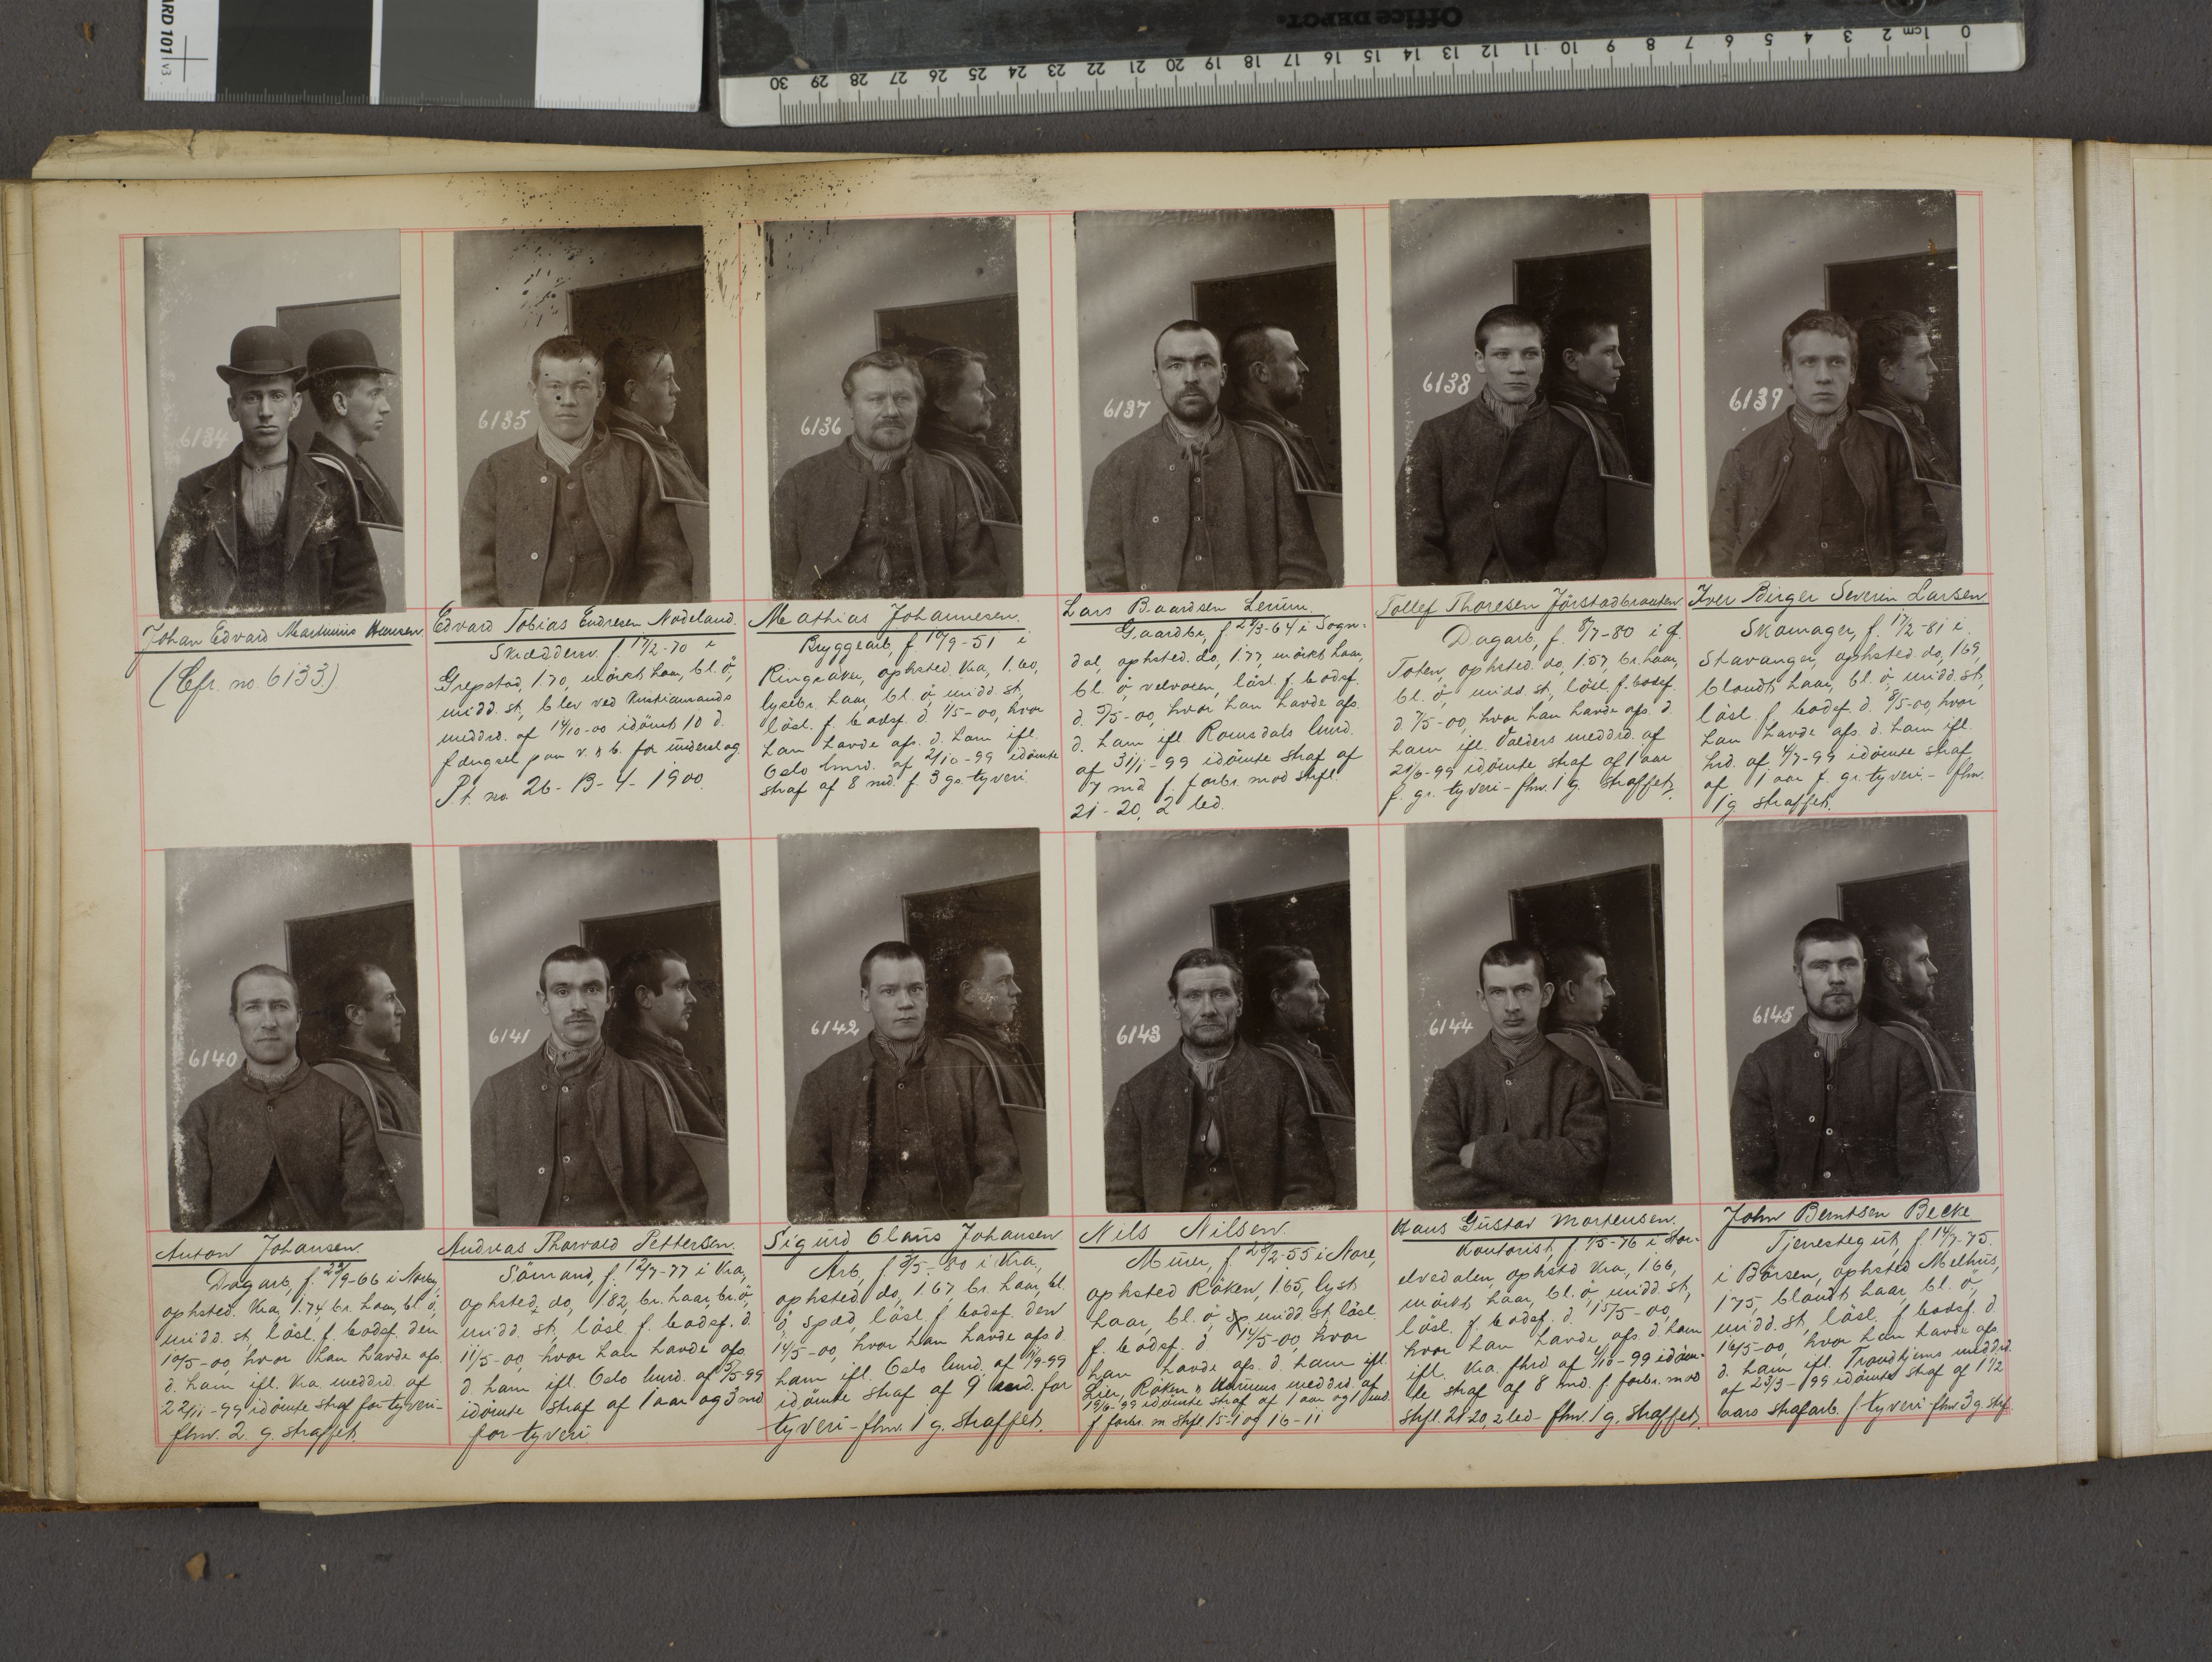 ARD 101 v3
Office DEPOT.
0 1cm 2 3 4 5 6 7 8 9 10 11 12 13 14 15 16 17 18 19 20 21 22 23 24 25 26 27 28 29 30
6134
Johan Edvard Martinius Hansen.
(Cfr. no. 6133).
6135
Edvard Tobias Endresen Nodeland.
Skræddersv. f. 17/2-70 i
Grepstad, 1.70, mörkt haar, bl. ö,
midd. st, blev ved Kristiansands
meddrd. af 14/10-00 idömt 10 d.
fængsel paa v. & b. for underslag.
P.t. no. 26-13-4-1900.
6136
Mathias Johannesen.
Bryggearb, f. 10/9-51 i
Ringsaker, ophsted. Kra, 1.60,
lysebr. haar, bl. ö, midd. st,
lösl. f. bodsf. d. 1/5-00, hvor
han havde afs. d. ham ifl.
Oslo lmrd. af 2/10-99 idömte
straf af 8 md. f. 3 gr. tyveri.
6137
Lars Baardsen Lerum.
Gaardbr, f. 29/3-64 i Sogn-
dal, ophsted. do, 1.77, mörkt haar,
bl. ö, velvoxen, lösl. f. bodsf.
d. 5/5-00, hvor han havde afs.
d. ham ifl. Romsdals lmrd.
af 31/1-99 idömte straf af
7 md f. forbr. mod strfl.
21-20, 2 led.
6138
Tollef Thoresen Jörstadbraaten.
Dagarb, f. 8/7-80 i Ø.
Toten, ophsted. do, 1.57, br. haar,
bl. ö, midd. st, lösl. f. bodsf.
d. 7/5-00, hvor han havde afs. d.
ham ifl. Valders meddrd. af
21/6-99 idömte straf af 1 aar
f. gr. tyveri - fhv. 1 g. straffet.
6139
Iver Birger Severin Larsen
Skomager, f. 17/2-81 i
Stavanger, ophsted. do, 1.69,
blondt haar, bl. ö, midd. st,
lösl. f. bodsf. d. 8/5-00, hvor
han havde afs. d. ham ifl.
hrd. af 4/7-99 idömte straf
af 1 aar f. gr. tyveri - fhv.
1 g straffet.
6140
Anton Johansen.
Dagarb, f. 29/9-66 i Norby,
ophsted. Kra, 1.74, br. haar, bl. ö,
midd. st, lösl. f. bodsf. den
10/5-00, hvor han havde afs.
d. ham ifl. Kra. meddrd. af
22/11-99 idömte straf for tyveri-
fhv. 2 g. straffet.
6141
Andreas Thorvald Pettersen.
Sömand, f. 12/7-77 i Kra,
ophsted. do, 1.82, br. haar, br. ö,
midd. st, lösl. f. bodsf. d.
11/5-00, hvor han havde afs.
d. ham ifl. Oslo lmrd. af 5/5-99
idömte straf af 1 aar og 3 md
for tyveri
6142
Sigurd Olaus Johansen
Arb, f. 3/5-80 i Kra,
ophsted do, 1.67, br. haar, bl.
ö, spæd, lösl. f. bodsf. den
14/5-00, hvor han havde afs d.
ham ifl. Oslo lmrd. af 11/9-99
idömte straf af 9 md. for
tyveri - fhv. 1 g. straffet.
6143
Nils Nilsen.
Murer, f. 28/2-55 i Nore,
ophsted Röken, 1.65, lyst
haar, bl. ö, midd. st, lösl.
f. bodsf. d 14/5-00, hvor
han havde afs. d. ham ifl.
Lier, Röken & Hurums meddrd. af
19/6-99 idömte straf af 1 aar og 1 md.
f forbr. m strfl. 15-1 og 16-11
6144
Hans Gustav Mortensen.
Kontorist, f. 1/5-76 i Stor-
elvedalen, ophsted Kra, 1.66,
mörkt haar, bl. ö, midd. st,
lösl. f. bodsf. d. 15/5-00,
hvor han havde afs. d. ham
ifl. Kra. fhrd af 4/10-99 idöm-
te straf af 8 md. f. forbr. mod
strfl. 21-20, 2 led - fhv. 1 g. straffet.
6145
John Berntsen Becke
Tjenestegut, f. 14/7-75.
i Börsen, ophsted Melhus,
1.75, blondt haar, bl. ö,
midd. st, lösl. f bodsf. d.
16/5-00, hvor han havde afs.
d. ham ifl. Trondhjems meddrd.
af 23/3-99 idömte straf af 1 1/2
aars strafarb. f. tyveri - fhv. 3 g. stf.